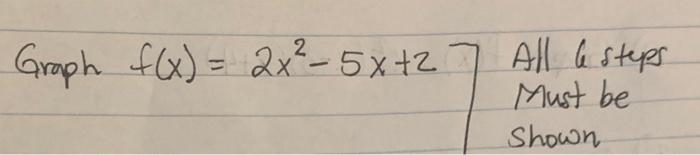 Graph f(x) = 2x² - 5x + 2
All 6 steps
Must be
Shown